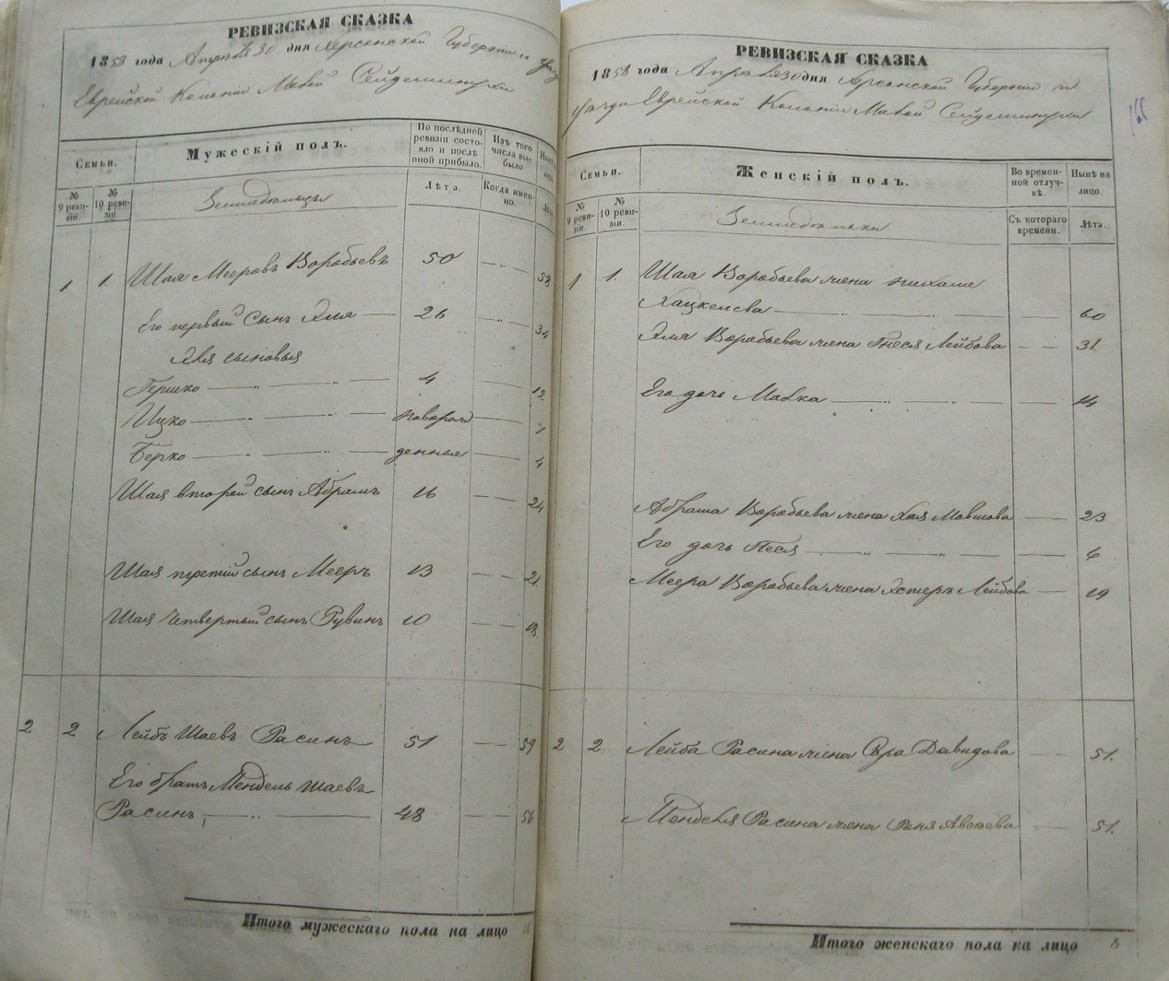 РЕВИЗСКАЯ СКАЗКА
1858 года Апреля 30 дня Херсонской Губернии и уезда
Еврейской Колонии Малой Сейдеминухи
Семьи.
№ 9 ревизіи.
№ 10 ревизіи.
Мужескій полъ.
По послѣдней ревизіи состояло и послѣ оной прибыло.
Изъ того числа выбыло
Лѣта.
Когда именно.
Земледельцы
1 1. Шая Мееровъ Воробьевъ 50 58
Его первый сынъ Эля 26 34
Эля сыновья
Гершко 4 12
Ицко новорож 7
Берко денные 4
Шая второй сынъ Абрамъ 16 24
Шая третій сынъ Мееръ 13 21
Шая Четвертый сынъ Рувинъ 10 18
2 2 Лейбъ Шаевъ Расинъ 51 59
Его братъ Мендель Шаевъ
Расинъ 48 56
Итого мужескаго пола на лицо
РЕВИЗСКАЯ СКАЗКА
1858 года Апреля 30 дня Херсонской Губернии и
уезда Еврейской Колонии Малой Сейдеминухи
Семьи.
№ 9 ревизіи.
№ 10 ревизіи.
Женскій полъ.
Во временной отлучкѣ.
Нынѣ на лицо.
Съ котораго времени.
Лѣта.
Земледельки
1 1. Шая Воробьева жена
Хацкелева 60
Эля Воробьева жена Гнеся Лейбова 31
Его дочь Малка 14
Абрама Воробьева жена Хая Мовшова 23
Его дочь Песя 6
Меера Воробьева жена Эстеръ Лейбова 19
2 2 Лейба Расина жена Сура Давидова 51.
Менделя Расина жена 51.
Итого женскаго пола на лицо 8